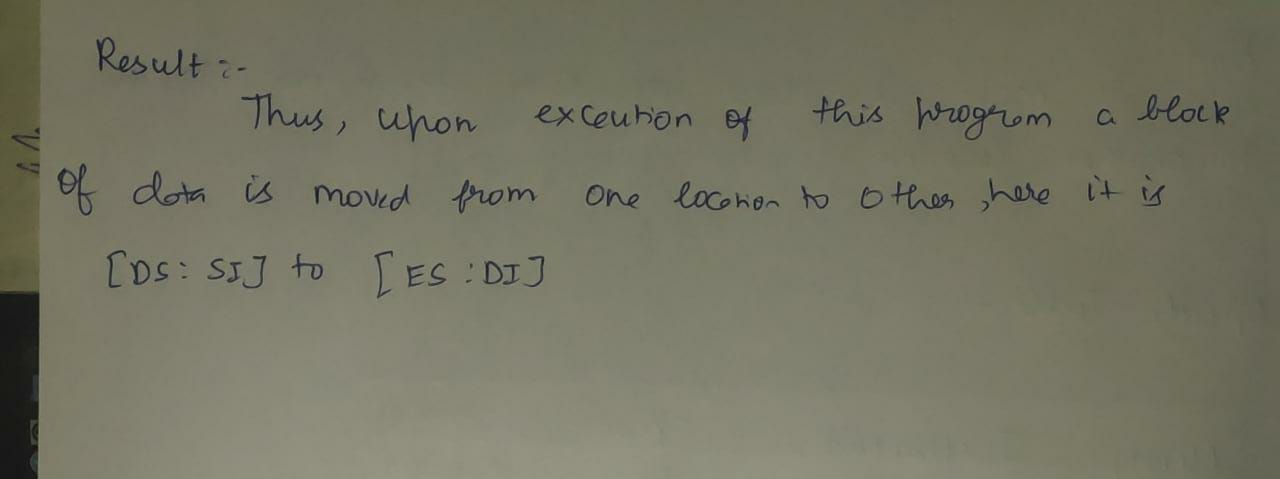 Result :-
Thus, upon exceution of this program a block
of data is moved from one location to other, here it is
[DS: SI] to [ES :DI]